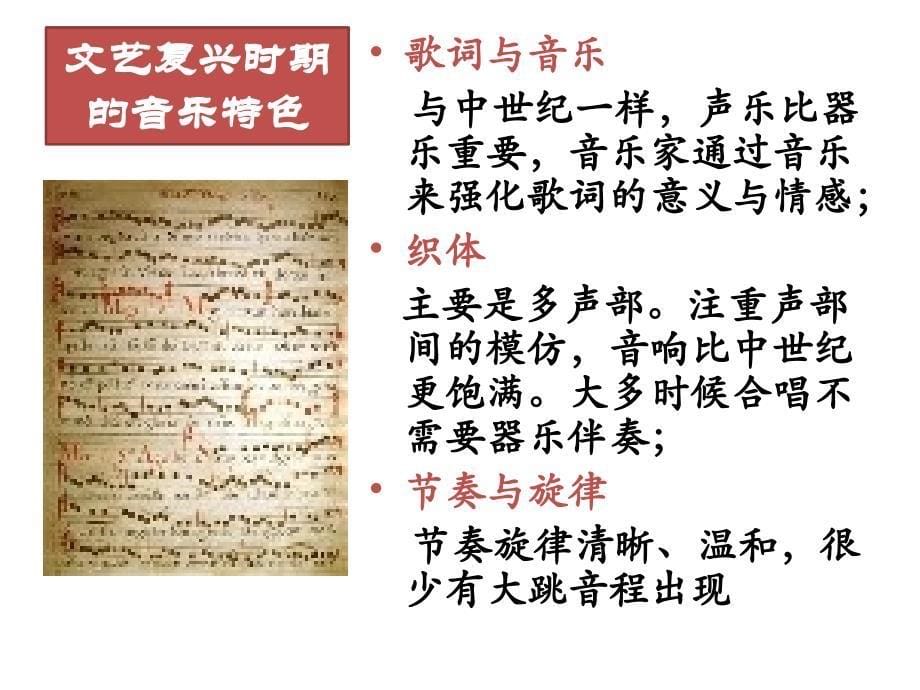 文艺复兴时期
的音乐特色
• 歌词与音乐
与中世纪一样，声乐比器
乐重要，音乐家通过音乐
来强化歌词的意义与情感；
• 织体
主要是多声部。注重声部
间的模仿，音响比中世纪
更饱满。大多时候合唱不
需要器乐伴奏；
• 节奏与旋律
节奏旋律清晰、温和，很
少有大跳音程出现